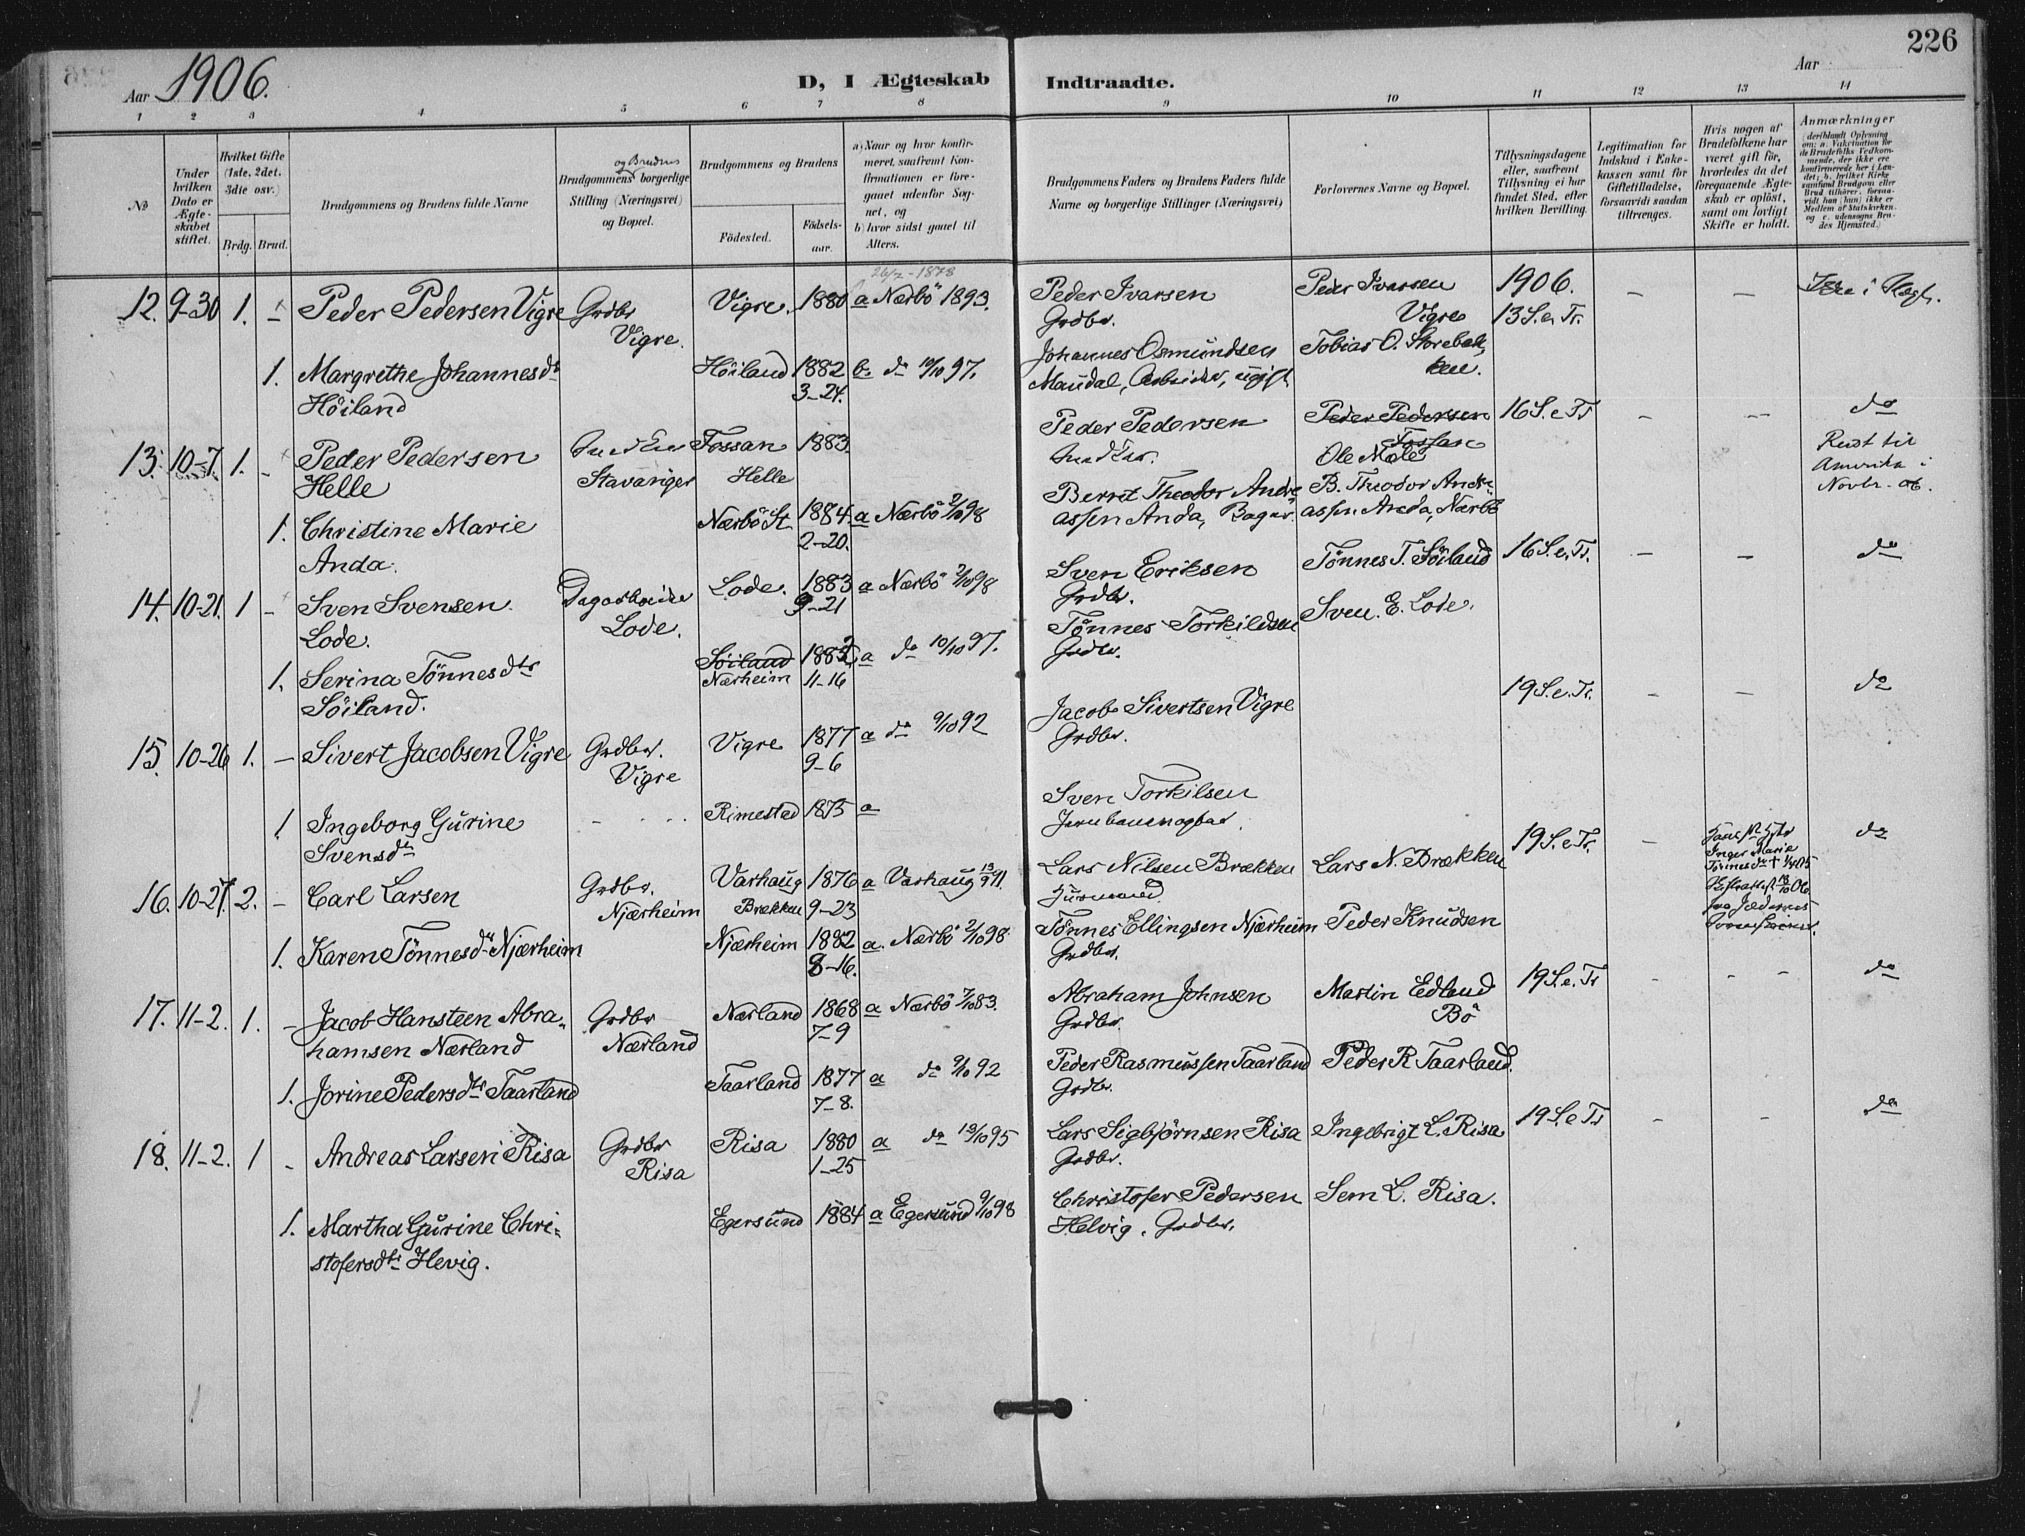 226
Aar 1906.
D, I Ægteskab Indtraadte.
Aar
1 2 3 4 5 6 7 8 9 10 11 12 13 14
No
Under hvilken Dato er Ægteskabet stiftet.
Hvilket Gifte (1ste, 2det. 3die osv.)
Brdg. Brud.
Brudgommens og Brudens fulde Navne
og Brudens
Brudgommens borgerlige Stilling (Næringsvei) og Bopæl.
Brudgommens og Brudens
Fødested.
Fødselsaar.
a) Naar og hvor konfirmeret, saafremt Konfirmationen er foregaaet udenfor Sognet, og
b) hvor sidst gaaet til Alters.
Brudgommens Faders og Brudens Faders fulde Navne og borgerlige Stillinger (Næringsvei)
Forlovernes Navne og Bopæl.
Tillysningsdagene eller, saafremt Tillysning ei har fundet Sted, efter hvilken Bevilling.
Legitimation for Indskud i Enkekassen samt for Giftetilladelse, forsaavidt saadan tiltrænges.
Hvis nogen af Brudefolkene har været gift før, hvorledes da det foregaaende Ægteskab er opløst, samt om lovligt Skifte er holdt.
Anmærkninger
12. 9-30 1. - Peder Pedersen Vigre Grdbr Vigre. Vigre. 1880 a Nærbö 1893. Peder Ivarsen Grdbr. Peder Ivarsen Vigre 1906. 13 S. e. Tr. - -
26/7 - 1878
1. Margrethe Johannesdtr Höiland Höiland 1882 3-24. b. do 10/10 97. Johannes Osmundsen Maudal, Arbeider, ugift Tobias O. Storebakken.
13. 10-7. 1. - Peder Pedersen Helle Stavanger Fossan Helle 1883. Peder Pedersen Peder Pedersen Fossan Ole Mæle 16 S. e Tr - - do
Reist til Amerika i Novbr. 06.
1. Christine Marie Anda. Nærbö St. 1884. 2-20. a Nærbö 2/10 98 Berret Theodor Andreassen Anda, Bager. B. Theodor Andreassen Anda, Nærbö
14. 10-21. 1 - Sven Svensen Lode. Dagarbeider Lode. Lode. 1883 9-21 a Nærbö 2/10 98 Sven Eriksen Grdbr. Tönnes T. Söiland 16 S. e. Tr. - - do
1. Serina Tönnesdtr Söiland. Söiland Nærheim 1882 11-16 a do 10/10 97. Tönnes Torkildsen Grdbr. Sven. E. Lode.
15. 10-26 1. - Sivert Jacobsen Vigre Grdbr. Vigre Vigre 1877 9-6 a do 9/10 92 Jacob Sivertsen Vigre Grdbr. 19 S. e. Tr. - - do
1. Ingeborg Gurine Svensdtr - Rimestad 1875 a Sven Torkilsen
16. 10-27. 2. - Carl Larsen Grdbr. Njærheim Varhaug Brækken 1876 9-23 a Varhaug 13/9 91. Lars Nilsen Brækken Lars N. Brækken 19 S. e Tr. - do
Inger Marie Tönnesdtr
1. Karen Tönnesdtr Njærheim Njærheim 1882 8-16. a. Nærbö 2/10 98. Tönnes Ellingsen Njærheim Grdbr. Peder Knudsen
17. 11-2. 1. - Jacob Hansteen Abrahamsen Nærland Grdbr Nærland Nærland 1868 7-9 a Nærbö 7/10 83. Abraham Johnsen Grdbr. Martin Edland Bö 19 S. e. Tr - - - do
1. Jorine Pedersdtr Taarland Taarland 1877 7-8. a do 9/10 92 Peder Rasmussen Taarland Grdbr. Peder R. Taarland.
18. 11-2. 1 - Andreas Larsen Risa Grdbr Risa Risa 1880 1-25 a do 13/10 95 Lars Sigbjörnsen Risa Grdbr. Ingebrigt L. Risa 19 S. e Tr - - do
1. Martha Gurine Christofersdtr Hevig. Egersund 1884 a Egersund 9/10 98 Christofer Pedersen Helvig. Grdbr. Sem L. Risa.